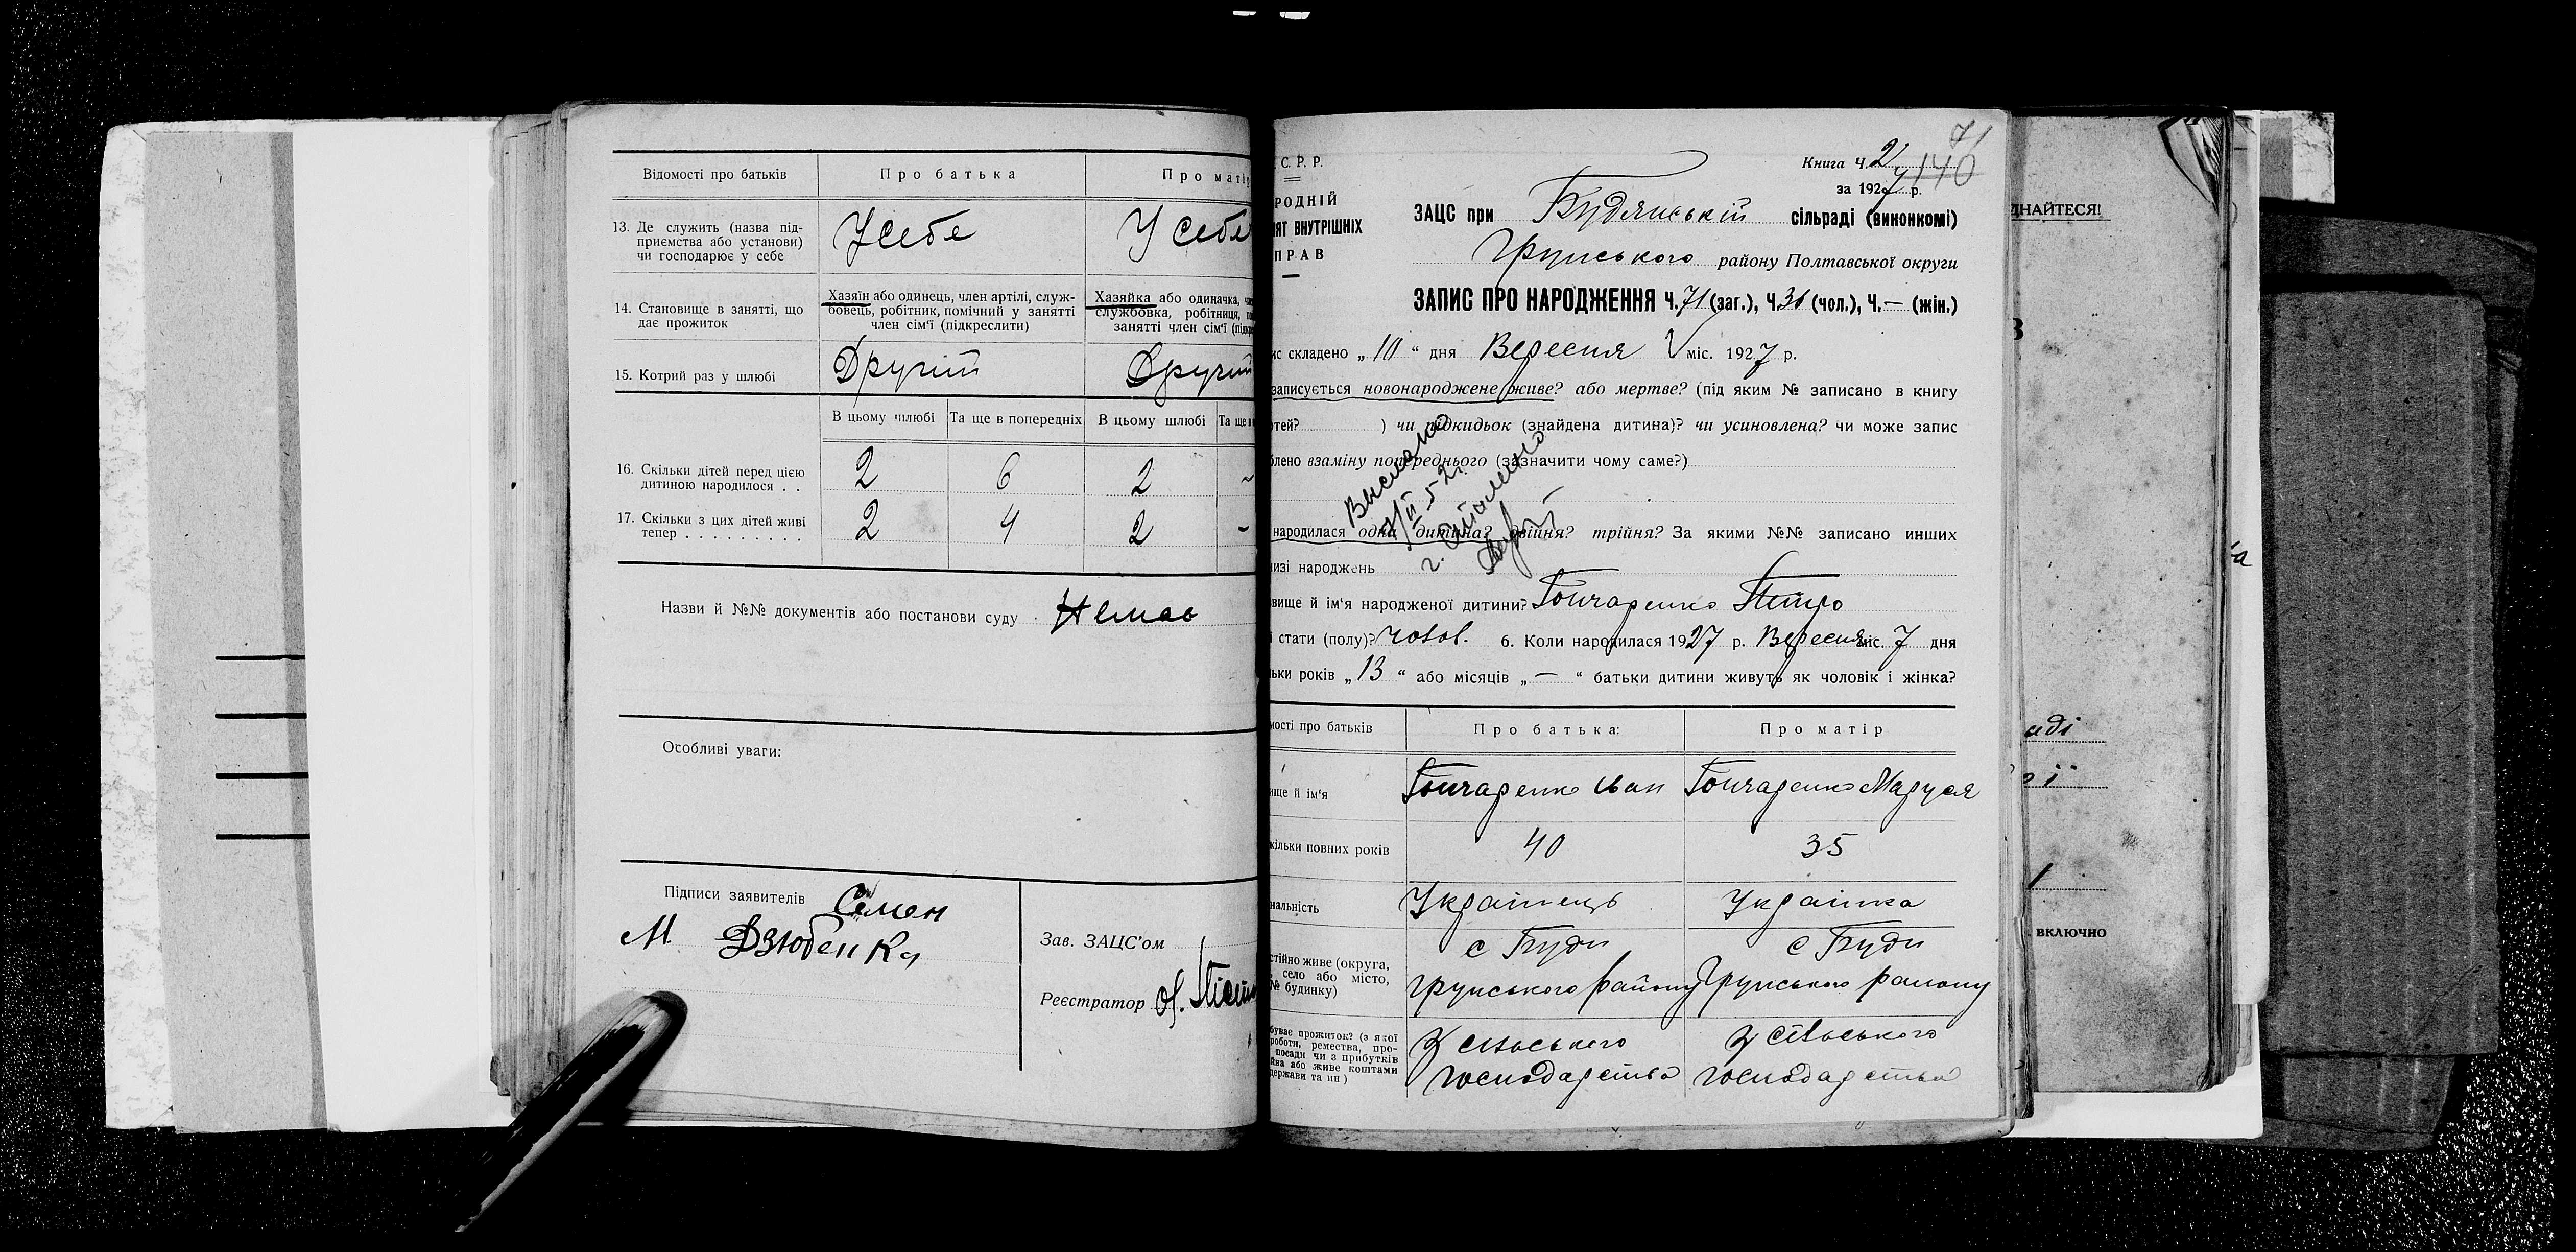 Відомості про батьків
Про батька
Про матір
13. Де служить (назва під-
приємства або установи)
чи господарює у себе
У себе
У себе
14. Становище в занятті, що
дає прожиток
Хазяїн або одинець, член артілі, служ-
бовець, робітник, помічний у занятті
член сім'ї (підкреслити)
Хазяйка або одиначка,
службовка, робітниця,
занятті член сім'ї
15. Котрий раз у шлюбі
Другий
Другий
В цьому шлюбі
Та ще в попередніх
В цьому шлюбі
Та ще в
16. Скільки дітей перед цією
дитиною народилося . .
2 6 2 ~
17. Скільки з цих дітей живі
тепер . . . . . . . . .
2 4 2 -
Назви й №№ документів або постанови суду Немає
Особливі уваги:
Підписи заявителів Семен
М. Дзюбенка
Зав. ЗАЦС'ом
Реєстратор
71
С. Р. Р.
Книга Ч. 2
140
за 1927 р.
РОДНІЙ
ЯТ ВНУТРІШНІХ
ПРАВ
ЗАЦС при Будянській сільраді (виконкомі)
Грунського району Полтавської округи
ЗАПИС ПРО НАРОДЖЕННЯ Ч. 71 (заг.), Ч. 36 (чол.), Ч. — (жін.)
ис складено „ 10 “ дня Вересня V міс. 1927 р.
записується новонароджене живе? або мертве? (під яким № записано в книгу
ртей? ) чи підкидьок (знайдена дитина)? чи усиновлена? чи може запис
блено взаміну попереднього (зазначити чому саме?)
Выслано
народилася одна дитина? двійня? трійня? За якими №№ записано инших
низі народжень
вище й ім'я народженої дитини? Гончаренко Петро
ї стати (полу)? чолов. 6. Коли народилася 1927 р. Вересня міс. 7 дня
льки років „ 13 “ або місяців „ — “ батьки дитини живуть як чоловік і жінка?
мості про батьків
Про батька:
Про матір
ище й ім'я
Гончаренко Іван
Гончаренко Маруся
кільки повних років
40
35
нальність
Українець
Українка
стійно живе (округа,
село або місто,
№ будинку)
с Буди
Грунського району
с Буди
Грунського району
буває прожиток? (з якої
роботи, ремества, про-
посади чи з прибутків
йва або живе коштами
держави та ин)
З сільського
господарства
З сільського
господарства
ДНАЙТЕСЯ!
В
аді
ї
включно